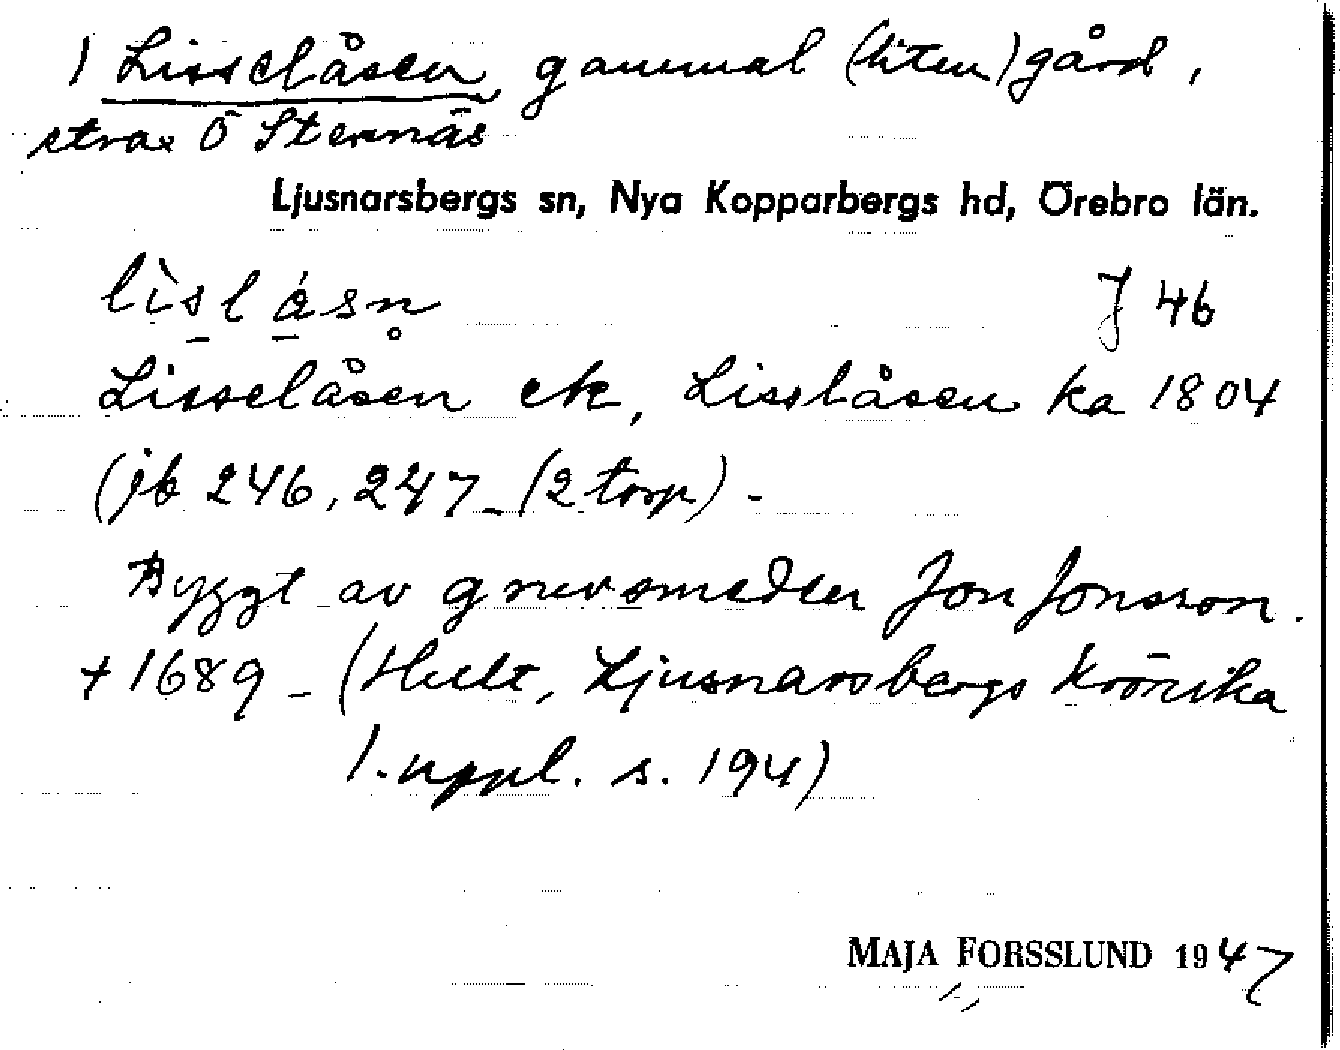 1 Lisselåsen, gammal (liten) gård,
strax Ö Stennäs
Ljusnarsbergs sn, Nya Kopparbergs hd, Örebro län.
lìslásn̥ J 46
Lisselåsen ek, Lisslåsen ka 1804
(jb 246, 247 - (2 torp) -
Byggt av gruvsmeden Jon Jonsson.
+ 1689 - (Hult, Ljusnarsbergs Krönika
1. uppl. s. 194)
MAJA FORSSLUND 1947